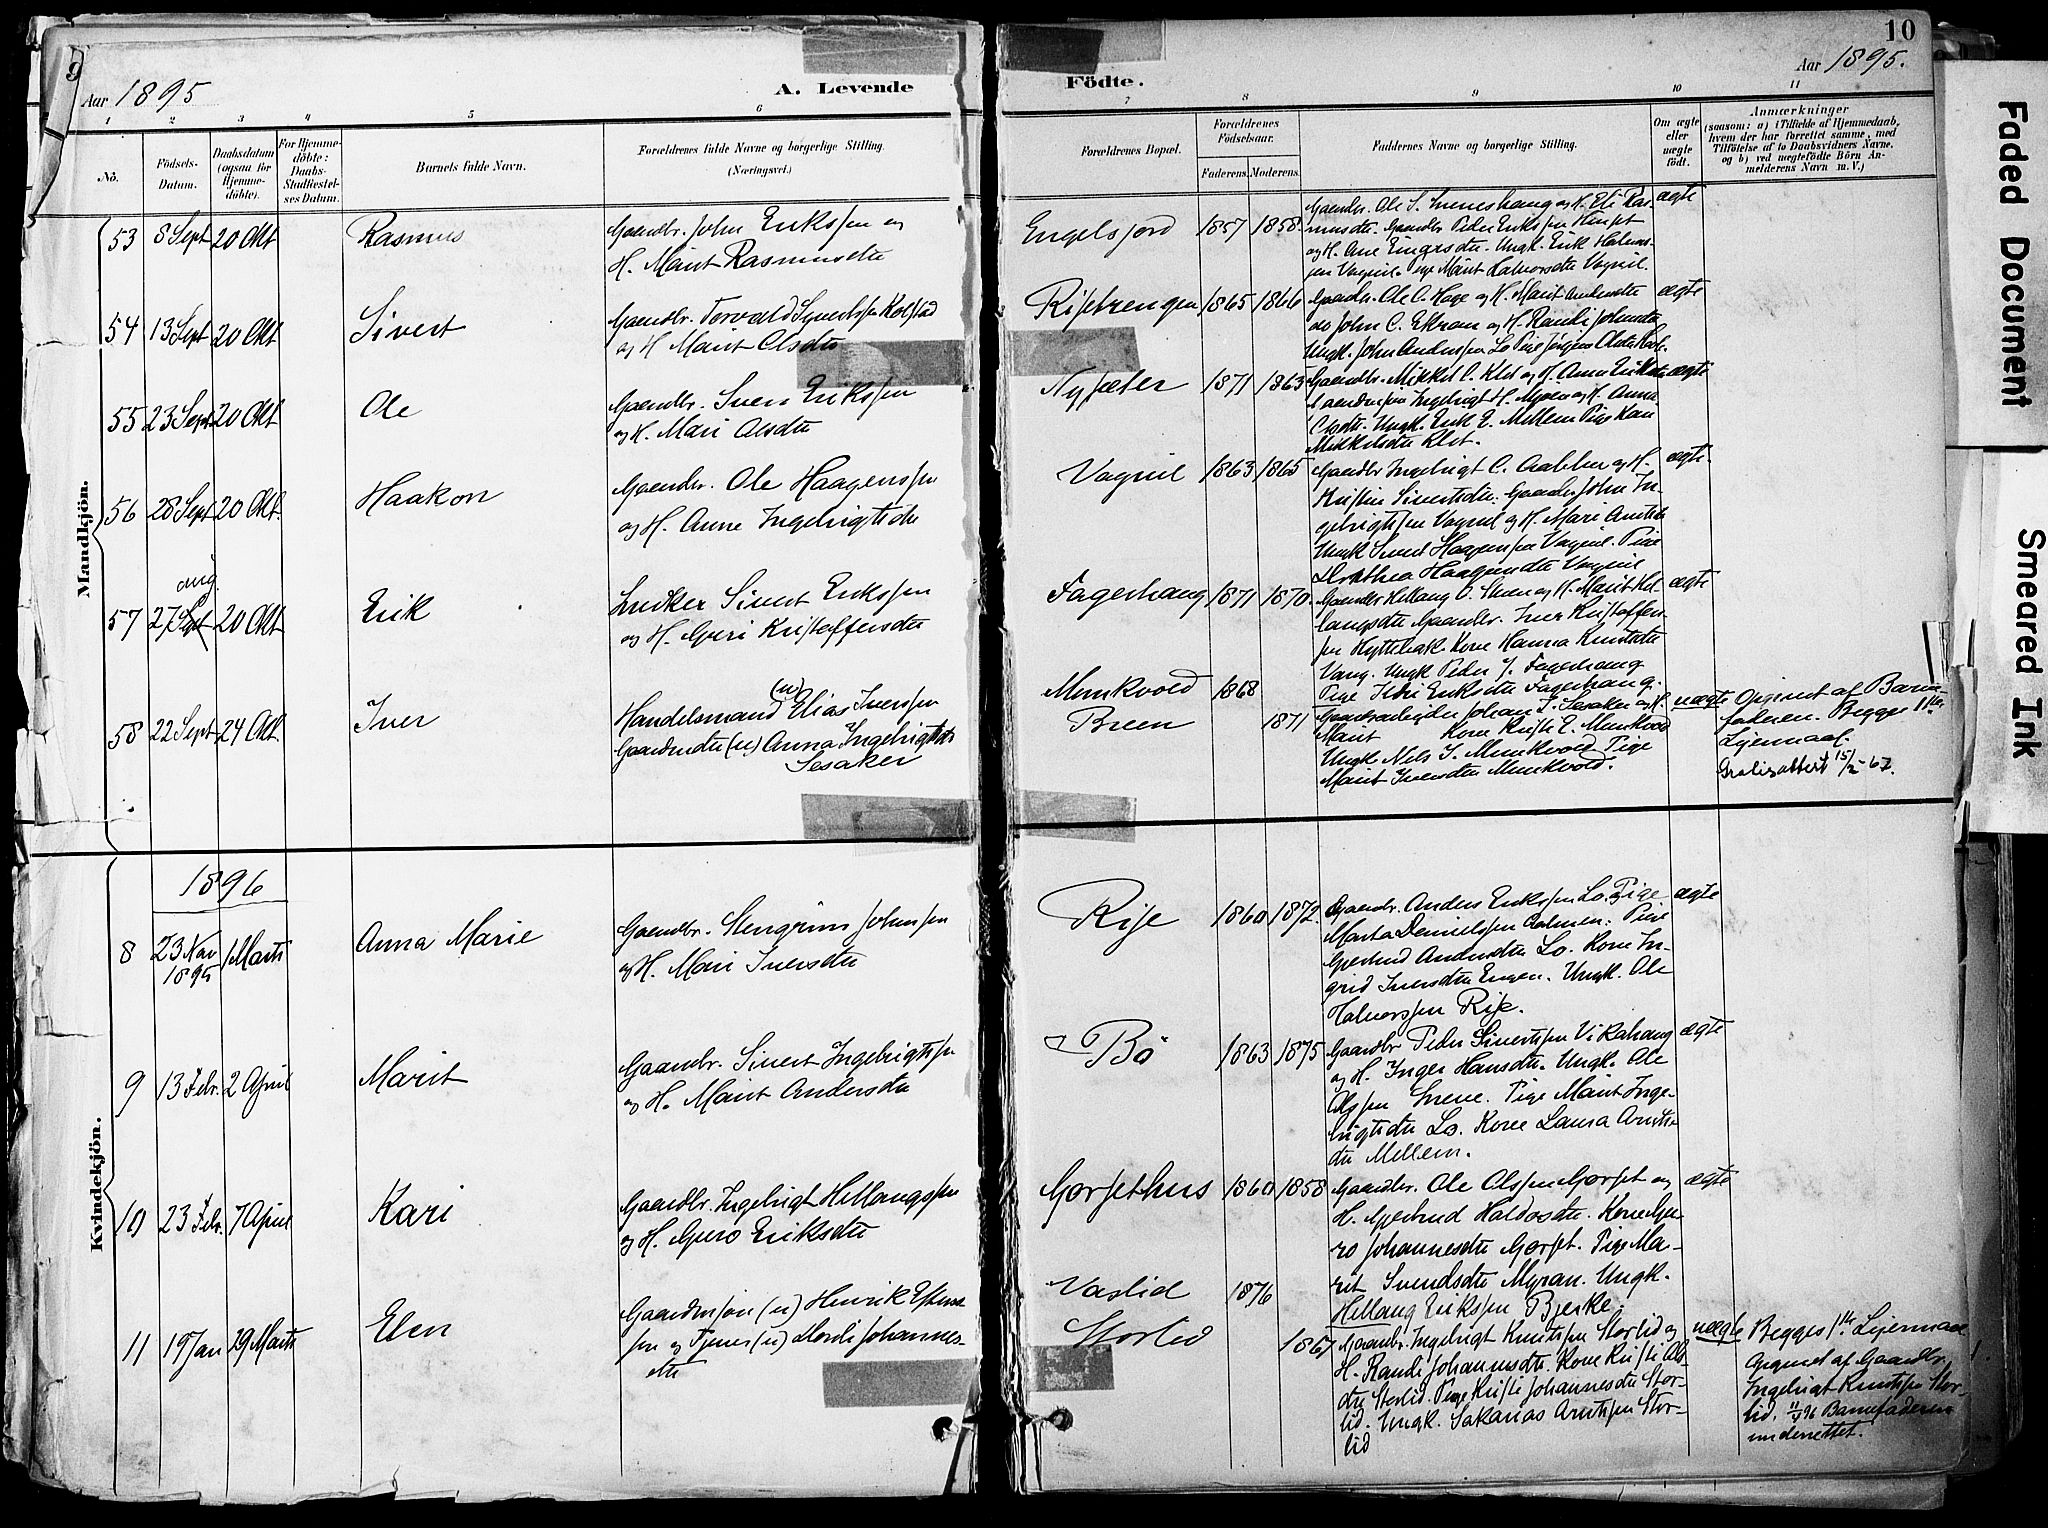 9
Aar 1895
A. Levende
Födte.
10
Aar 1895.
1 2 3 4 5 6 7 8 9 10 11
No.
Födsels-
Datum.
Daabsdatum
(ogsaa för
Hjemme-
döbte).
For Hjemme-
döbte:
Daabs-
Stadfæstel-
ses Datum.
Barnets fulde Navn.
Forældrenes fulde Navne og borgerlige Stilling.
(Næringsvei.)
Forældrenes Bopæl.
Forældrenes
Födselsaar.
Faderens. Moderens.
Faddernes Navne og borgerlige Stilling.
Om ægte
eller
uægte
födt.
Anmærkninger
(saasom: a) i Tilfælde af Hjemmedaab,
hvem der har forrettet samme, med
Tilföielse af to Daabsvidners Navne.
og b) ved uægtefödte Börn An-
melderens Navn m. V.)
Mandkjön.
53 8 Sept 20 Okt
Rasmus
Gaardbr. John Erikssen og
H. Marit Rasmusdtr
Engelsjord 1857 1858.
Gaardbr. Ole S. Sneveshaug og H. Eli Ras-
musdtr. Gaardbr Peder Erikssen
og H. Ane Eingarsdtr. Ungk. Erik Halvors-
sen Vognil. Pige Marit Halvorsdtr Vognil.
ægte
54 13 Sept 20 Okt
Sivert
Gaardbr. Torvald Syvertssen Kolstad
og H Marit Olsdtr
Ristrengen 1865 1866
Gaardbr. Ole O. Hage og H. Marit Andersdtr
do John C. Ekran og H. Randi Johnsdtr
Ungk. John Anderssen Lo Pige
ægte
55 23 Sept 20 Okt
Ole
Gaardbr. Sven Erikssen
og H. Mari Olsdtr
Nysæter 1871 1863
Gaardbr. Mikkel C. Klet og H. Anne Eriksdtr
Gaardmsön Ingebrigt H. Mjöen og H. Anne
Olsdtr. Ungk. Erik E. Mellem Pige Kari
Mikkelsdtr Klet.
ægte
56 28 Sept 20 Okt.
Haakon
Gaardbr. Ole Haagenssen
og H. Anne Ingebrigtsdtr
Vognil 1863 1865
Gaardbr Ingebrigt C. Aalbu og H.
Kristine Sivertsdtr. Gaardbr John In-
gebrigtssen Vognil og H. Mari Arntsdtr
Ungk Sivert Haagenssen Vognil. Pige
Dorothea Haagensdtr Vognil
ægte.
57 27 Sept 20 Okt
aug.
Erik
Sivert Erikssen
og H. Guri Kristoffersdtr
Fagerhaug 1871 1870.
Gaardbr Hellang O. Steen og H. Marit Hel-
langsdtr Gaardbr. Iver Kristoffers-
sen Hyttebak. Kone Hanna Knutsdtr
Vang. Ungk. Peder J. Fagerhaug
Pige Eriksdtr Fagerhaug.
ægte
58 22 Sept 24 Okt.
Iver
Handelsmand (u) Elias Iverssen
Gaardmdtr (u) Anna Ingebrigtsdtr
Sesaker
Munkvold 1868
Breen 1871
Gaardsarbeider Johan I. Sesaker og H.
Marit Kone Kristi E. Munkvold
Ungk. Nels I. Munkvold Pige
Marit Iversdtr Munkvold.
uægte
Opgivet af Barne-
faderen. Begges 1ste
Leiermaal.
Gratisattest 15/2-67.
Kvindekjön.
1896
8 23 Nov 1895 1 Marts
Anna Marie
Gaardbr. Stengrim Johnssen
og H. Mari Iversdtr
Rise 1860 1872.
Gaardbr. Anders Erikssen Lo. Pige
Marta Danielssen Aalmen. Pige
Gjertrud Andersdtr Lo. Kone In-
grid Iversdtr Engen. Ungk. Ole
Halvorssen Rise.
ægte
9 13 Febr. 2 April
Marit
Gaardbr. Sivert Ingebrigtssen
og H. Marit Andersdtr
Bö 1863 1875
Gaardbr Peder Sivertssen Vikahaug
og H. Inger Hansdtr. Ungk. Ole
Olssen Sneve. Pige Marit Inge-
brigtsdtr Lo. Kone Laura Arnts-
dtr Mellem.
ægte
10 23 Febr. 7 April
Kari
Gaardbr. Ingebrigt Hellangssen
og H. Guro Eriksdtr
Gorsethus 1860 1858
Gaardbr. Ole Olssen Gorset og
H. Gjertrud Haldosdtr. Kone Gu-
ro Johannesdtr Gorset. Pige Ma-
rit Svendsdtr Myran. Ungk.
Hellang Erikssen Bjerke.
ægte
11 19 Jan 29 Marts
Elen
Gaardmsön (u) Henrik Estens-
sen og Tjener (u) Dordi Johannes-
dtr
Vaslid 1876
Storlid 1867
Gaardbr. Ingebrigt Knutssen Storlid og
H. Randi Johannesdtr. Kone Kristi Ols-
dtr Storlid. Pige Kristi Johannesdtr Stor-
lid. Ungk. Sakarias Arntssen Stor-
lid
uægte
Begges 1ste Leiermaal
Opgivet af Gaardbr.
Ingebrigt Knutssen Stor-
lid. 11/4 96 Barnefaderen
underrettet.
Faded Document
Smeared Ink